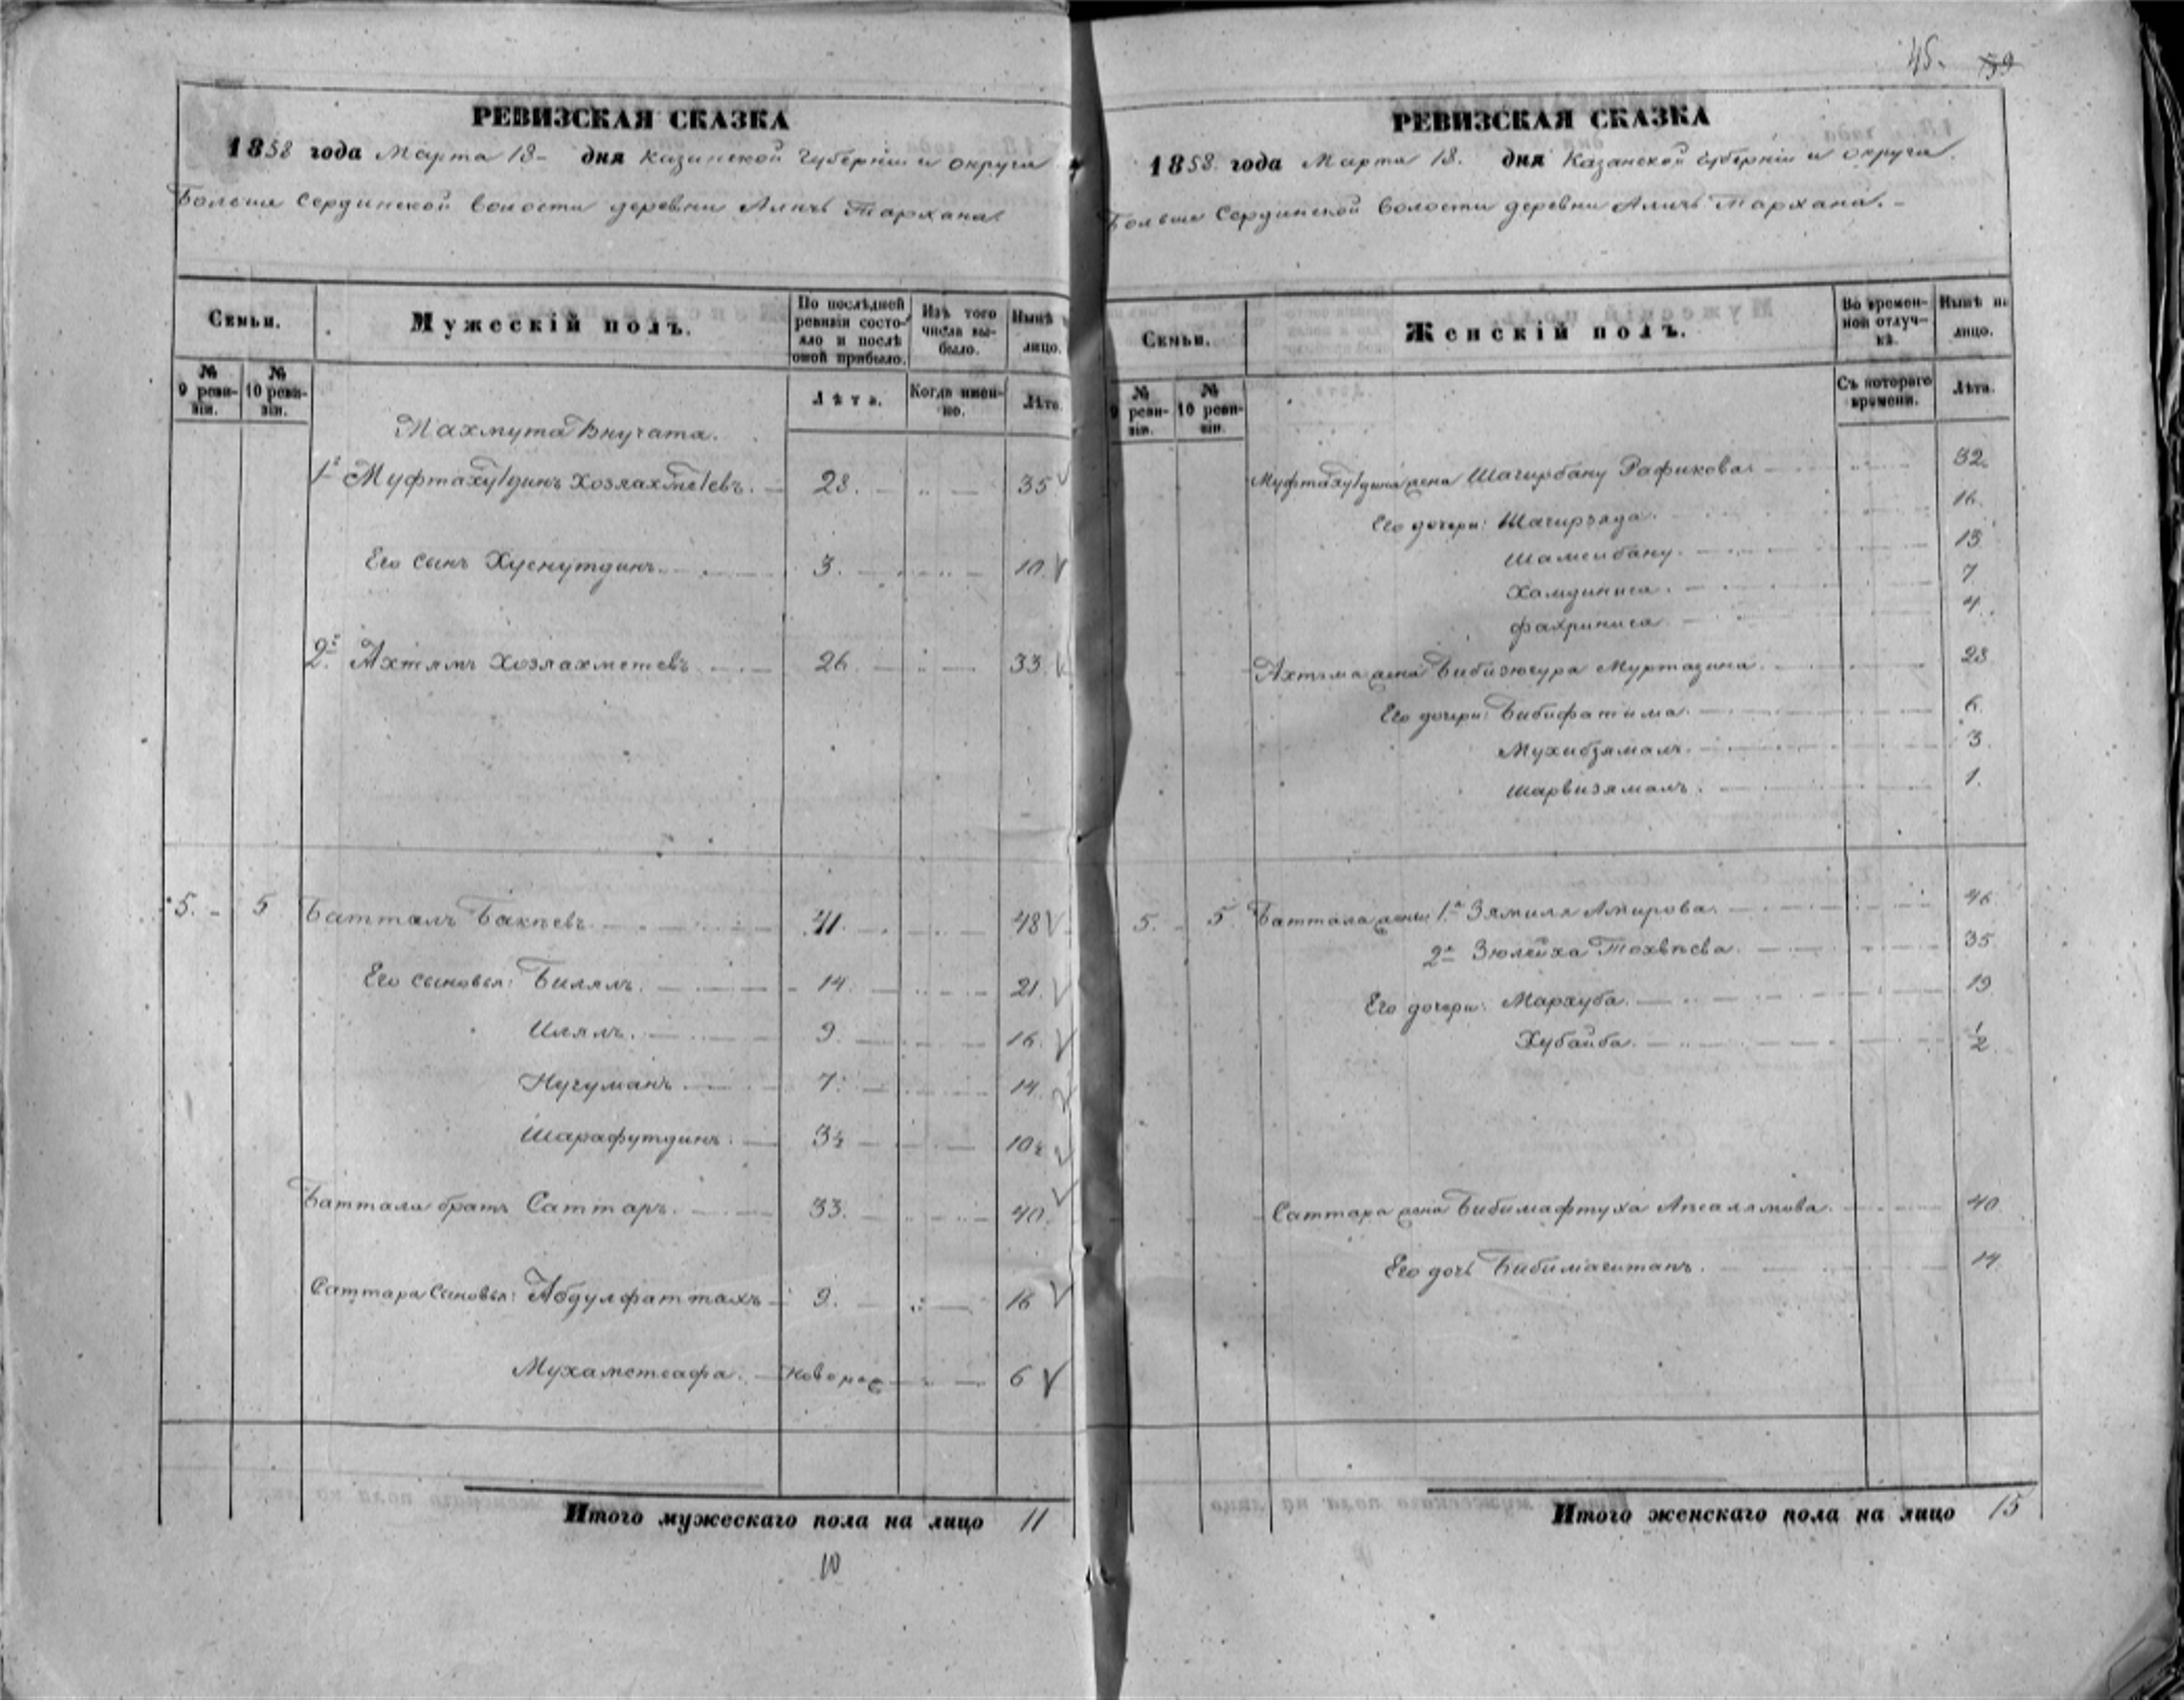 45. 59
РЕВИЗСКАЯ СКАЗКА
1858 года Марта 18- дня Казанской Губерніи и округа
Больше Сердинской волости деревни Алнчь Тархана
Семьи.
Мужескій полъ.
По послѣдней ревизіи состояло и послѣ оной прибыло.
Изъ того числа выбыло.
Нынѣ лицо.
№ 9 ревизіи.
№ 10 ревизіи.
Лѣта.
Когда именно.
Лѣта.
Махмута Внучата.
1й Муфтахутдинъ Хозяхметевъ. 28. 35
Его сынъ Хуснутдинъ. 3. 10.
2й Ахтямъ Хозяхметевъ 26 33
5. 5 Батталъ Бакѣевъ 41. 48
Его сыновья: Билялъ. 14. 21.
Илялъ. 9. 16.
Нугуманъ 7. 14.
Шарафутдинъ. 3½ 10½
Баттала братъ Саттаръ. 33. 40.
Саттара Сыновья: Абдулфаттахъ 9. 16
Мухаметсафа. новорож 6
Итого мужескаго пола на лицо 11
10
РЕВИЗСКАЯ СКАЗКА
1858. года Марта 18. дня Казанской Губерніи и округа.
Больше Сердинской Волости деревни Алнчь Тархана.-
Семьи.
Женскій полъ.
Во временной отлучкѣ.
Нынѣ на лицо.
№ 9 ревизіи.
№ 10 ревизіи.
Съ котораго времени.
Лѣта.
Муфтахутдина жена Шагирбану Рафикова 32.
Его дочери: Шагирзяда. 16.
Шамсибану. 13
Хамдиниса. 7
Фахриниса 4.
Ахтяма жена Бибизюгура Муртазина. 28
Его дочери: Бибифатима. 6.
Мухибзямалъ. 3.
Шарвизямалъ. 1.
5. 5 Баттала жены: 1я Зямиля Амирова. 46
2я Зюлейха Тохвѣева. 35
Его дочери: Мархуба. 19
Хубайба. ½
Саттара жена Бибимафтуха Апсалямова. 40
Его дочь Бибимагитапъ. 14
Итого женскаго пола на лицо 15